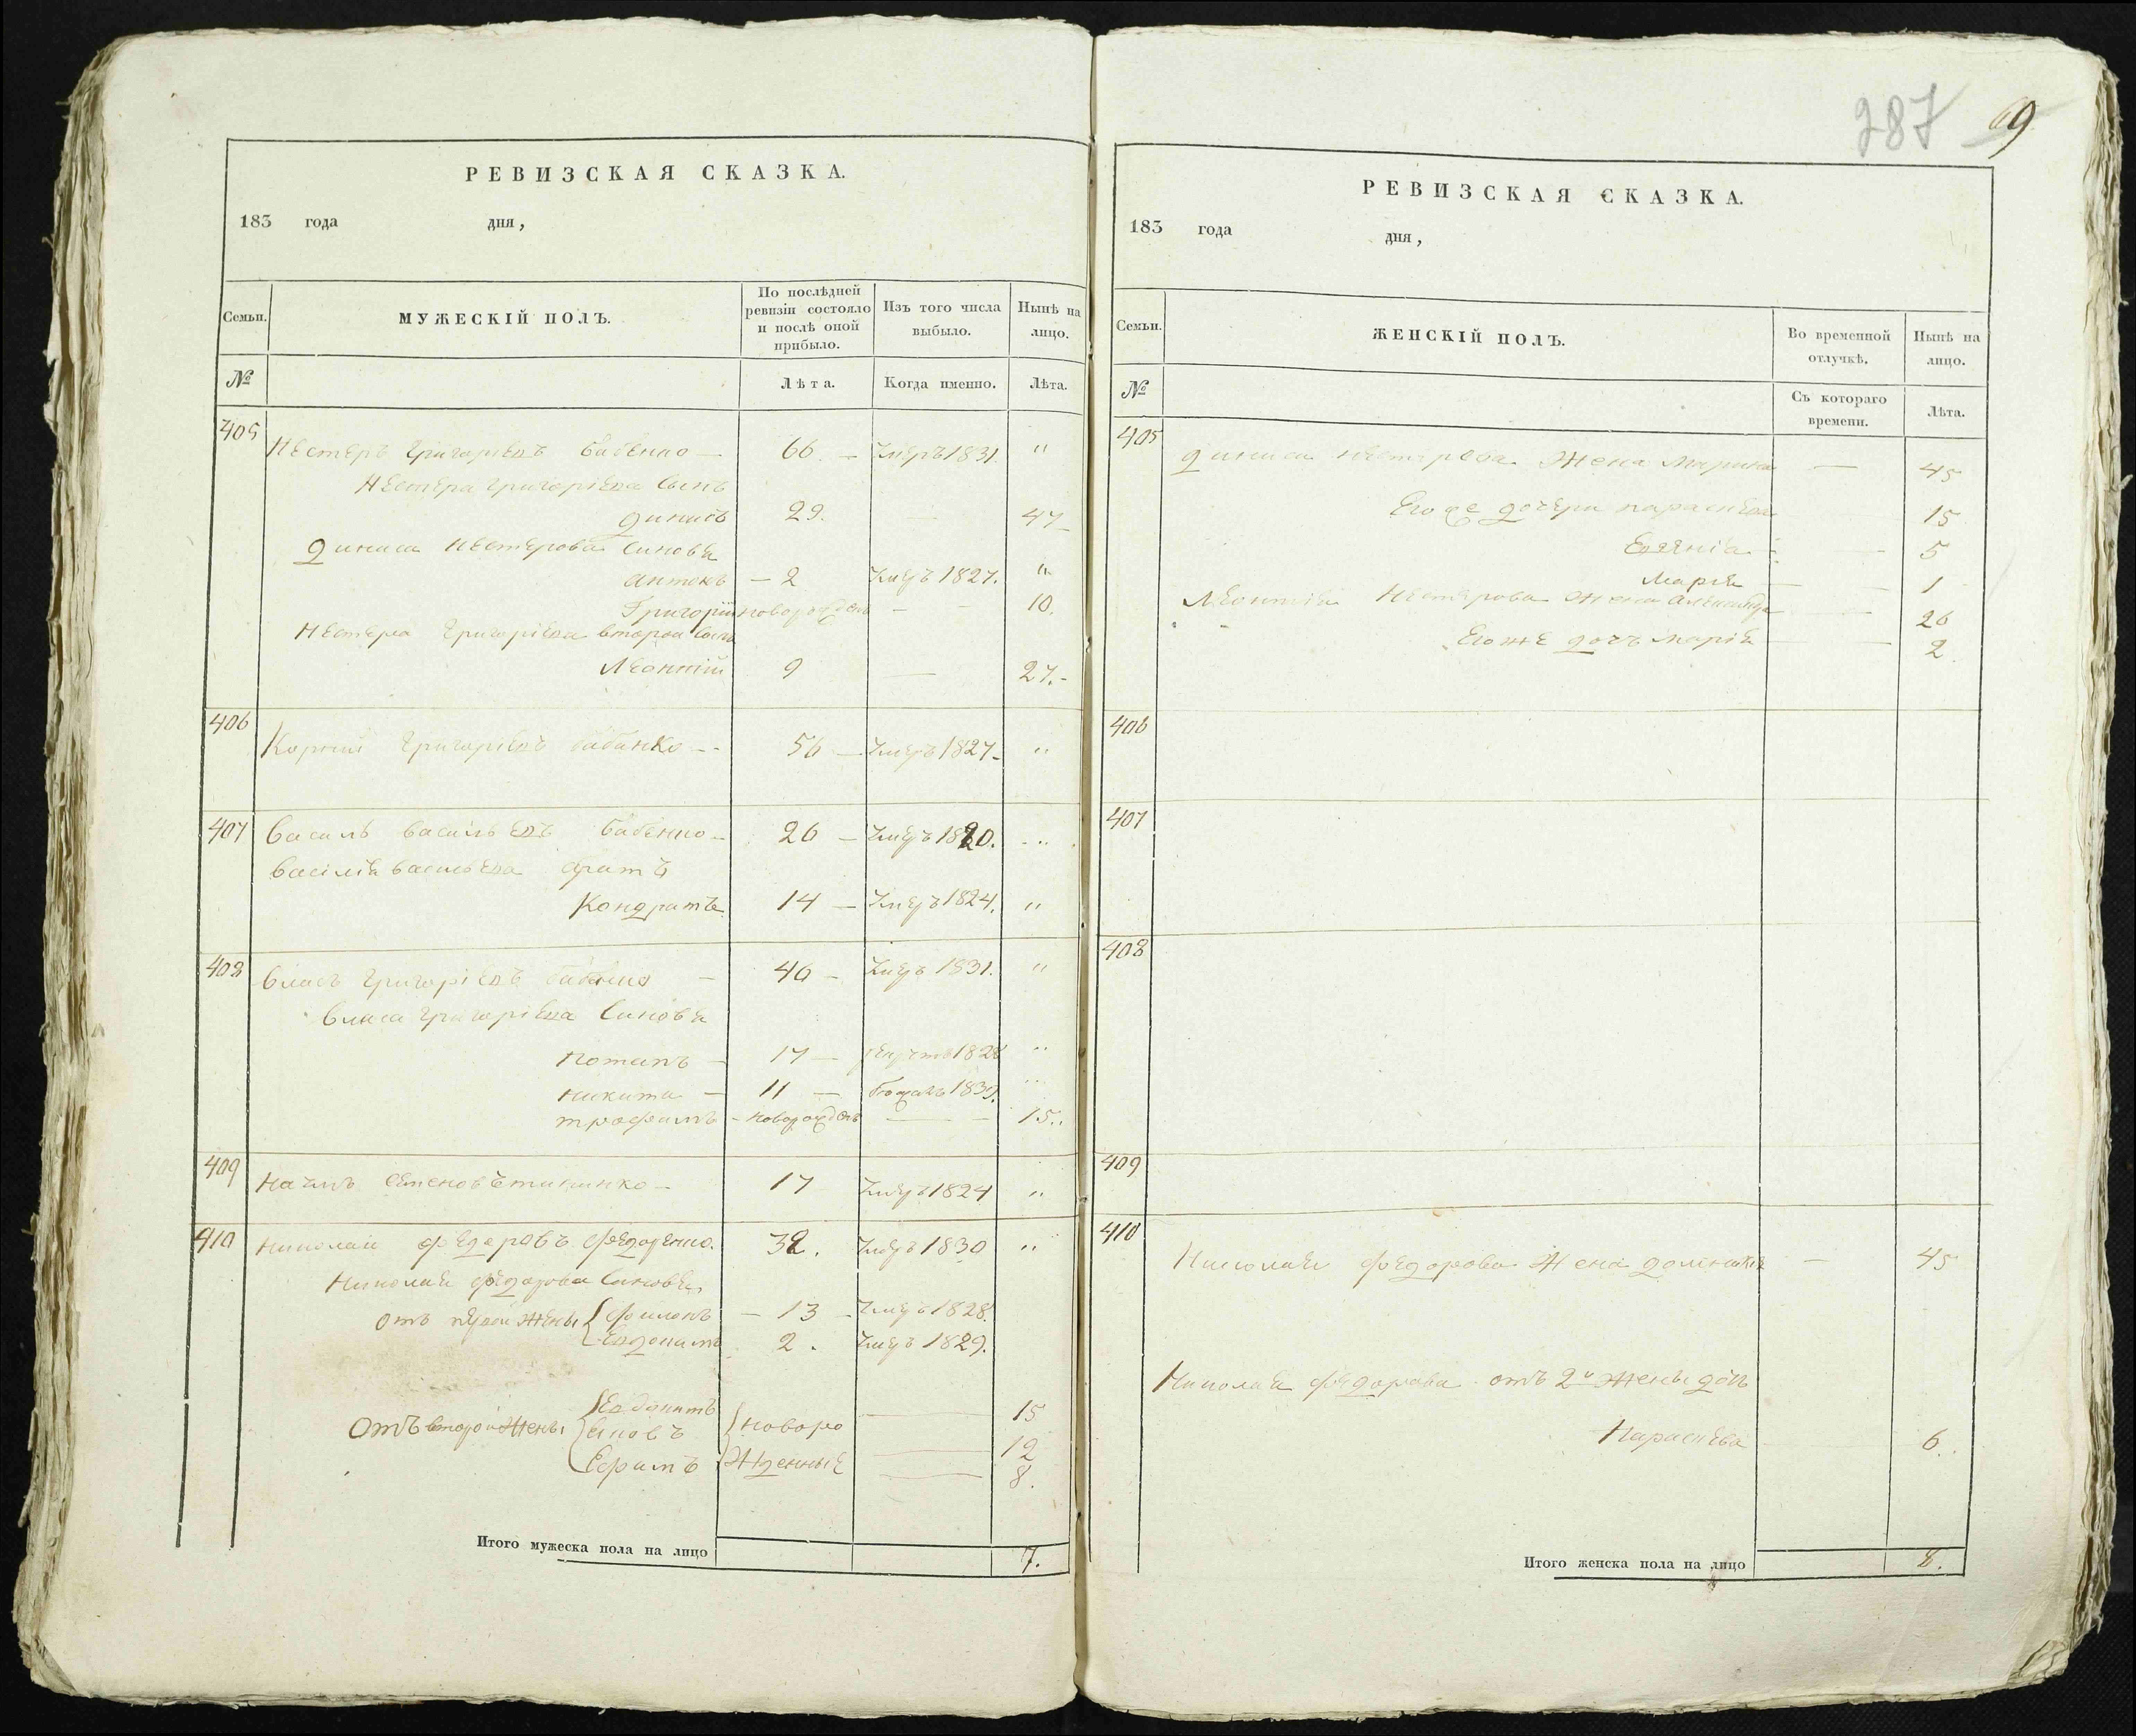 287 69
РЕВИЗСКАЯ СКАЗКА.
183 года дня,
Семьи.
МУЖЕСКІЙ ПОЛЪ.
По послѣдней ревизіи состояло и послѣ оной прибыло.
Изъ того числа выбыло.
Нынѣ на лицо.
№
Лѣта.
Когда именно.
Лѣта.
405
Нестеръ Григорьевъ Бабенко — 66. — умеръ 1831. "
Нестера Григорьева сынъ
Динисъ 29. — 47
Диниса Нестерова синовья
Антонъ — 2 умеръ 1827. "
Григорій новорожденъ — 10.
Нестера Григорьева второй сынъ
Леонтій 9 — 27.-
406
Корній Григорьевъ Бабенко -- 56 — умеръ 1827. "
407
Василь Васильевъ Бабенко — 26 — умеръ 1820. "
Василія Васильева братъ
Кондратъ 14 — умеръ 1824. "
408
Власъ Григорьевъ Бабенко — 46 — умеръ 1831. "
Власа Григорьева синовья
Потапъ — 17 — 1828 "
Никита — 11 — 1830. "
Трофимъ — новорожденъ — 15..
409
Наумъ Семеновъ — 17 умеръ 1824 "
410
Николай Федоровъ Федоренко. 32. умеръ 1830 "
Николая Федорова синовья
отъ первой жены Филонъ — 13 — умеръ 1828.
Евдокимъ 2. умеръ 1829.
Отъ второй жены новоро 15
12
Ефимъ жденные 8.
Итого мужеска пола на лицо 7.
РЕВИЗСКАЯ СКАЗКА.
183 года дня,
Семьи.
ЖЕНСКІЙ ПОЛЪ.
Во временной отлучкѣ.
Нынѣ на лицо.
№
Съ котораго времени.
Лѣта.
405
Диниса Нестерова жена Марина — 45
Егоже дочери Параскева 15
— 5
Марія — 1
Леонтія Нестерова жена — 26
Егоже дочъ Марія — 2.
406
407
408
409
410
Николая Федорова жена — 45
Николая Федорова отъ 2й жены дочь
Параскева 6.
Итого женска пола на лицо 8.